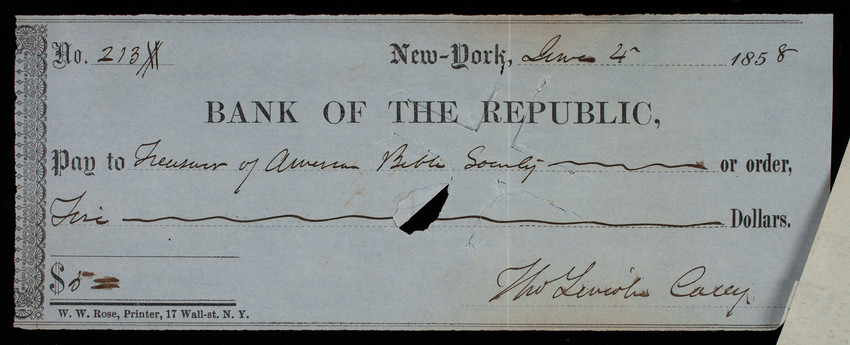 No. 213 New-York, June 4 1858
BANK OF THE REPUBLIC,
Pay to Treasurer of American Bible Society or order,
Five Dollars.
$5
Tho Lincoln Casey
W. W. Rose, Printer, 17 Wall-st. N. Y.